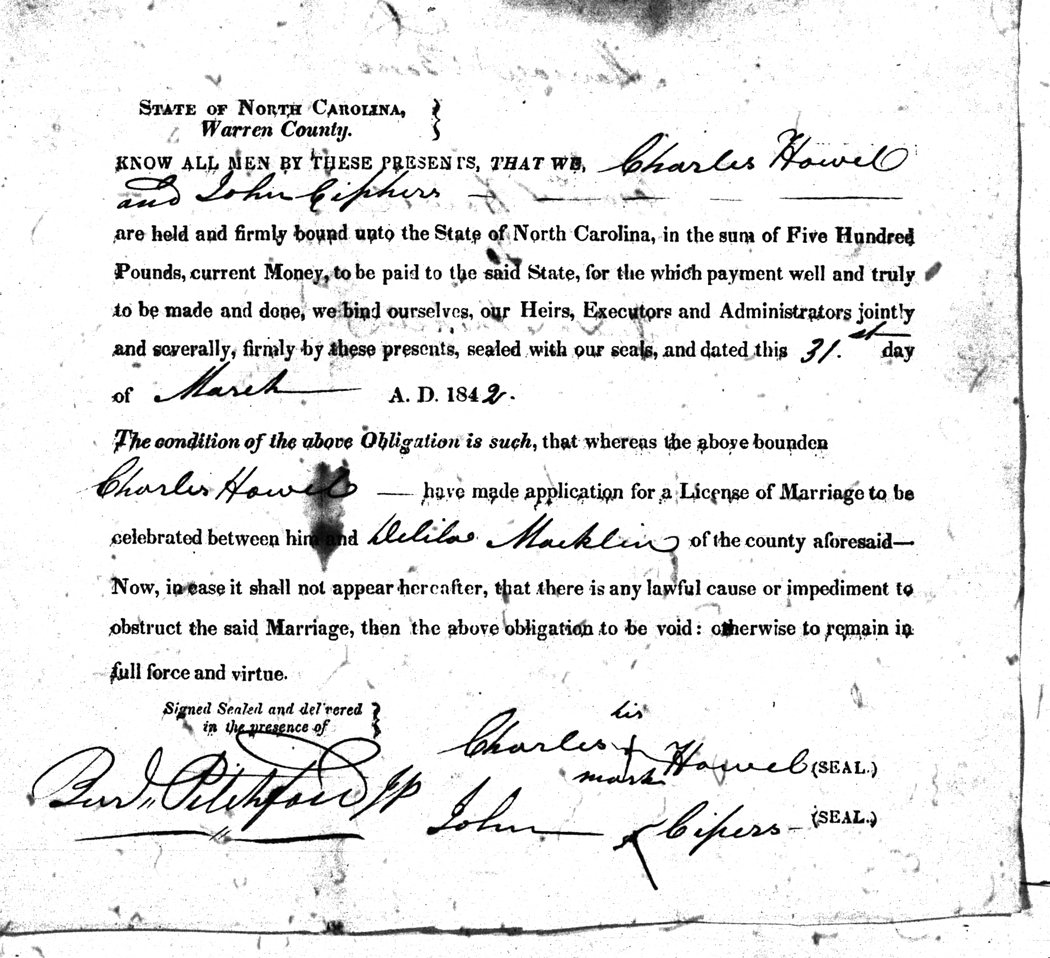 STATE OF NORTH CAROLINA,
Warren County.
KNOW ALL MEN BY THESE PRESENTS, THAT WE, Charles Howel
and John Ciphers
are held and firmly bound unto the State of North Carolina, in the sum of Five Hundred
Pounds, current Money, to be paid to the said State, for the which payment well and truly
to be made and done, we bind ourselves, our Heirs, Executors and Administrators jointly
and severally, firmly by these presents, sealed with our seals, and dated this 31.st day
of March A. D. 1842.
The condition of the above Obligation is such, that whereas the above bounden
Charles Howel — have made application for a License of Marriage to be
celebrated between him and Delila Macklin of the county aforesaid—
Now, in case it shall not appear hereafter, that there is any lawful cause or impediment to
obstruct the said Marriage, then the above obligation to be void: otherwise to remain in
full force and virtue.
Signed Sealed and del'vered
in the presence of
his
Charles Howel (SEAL.)
mark
Pitchford JP
John Cipers (SEAL.)